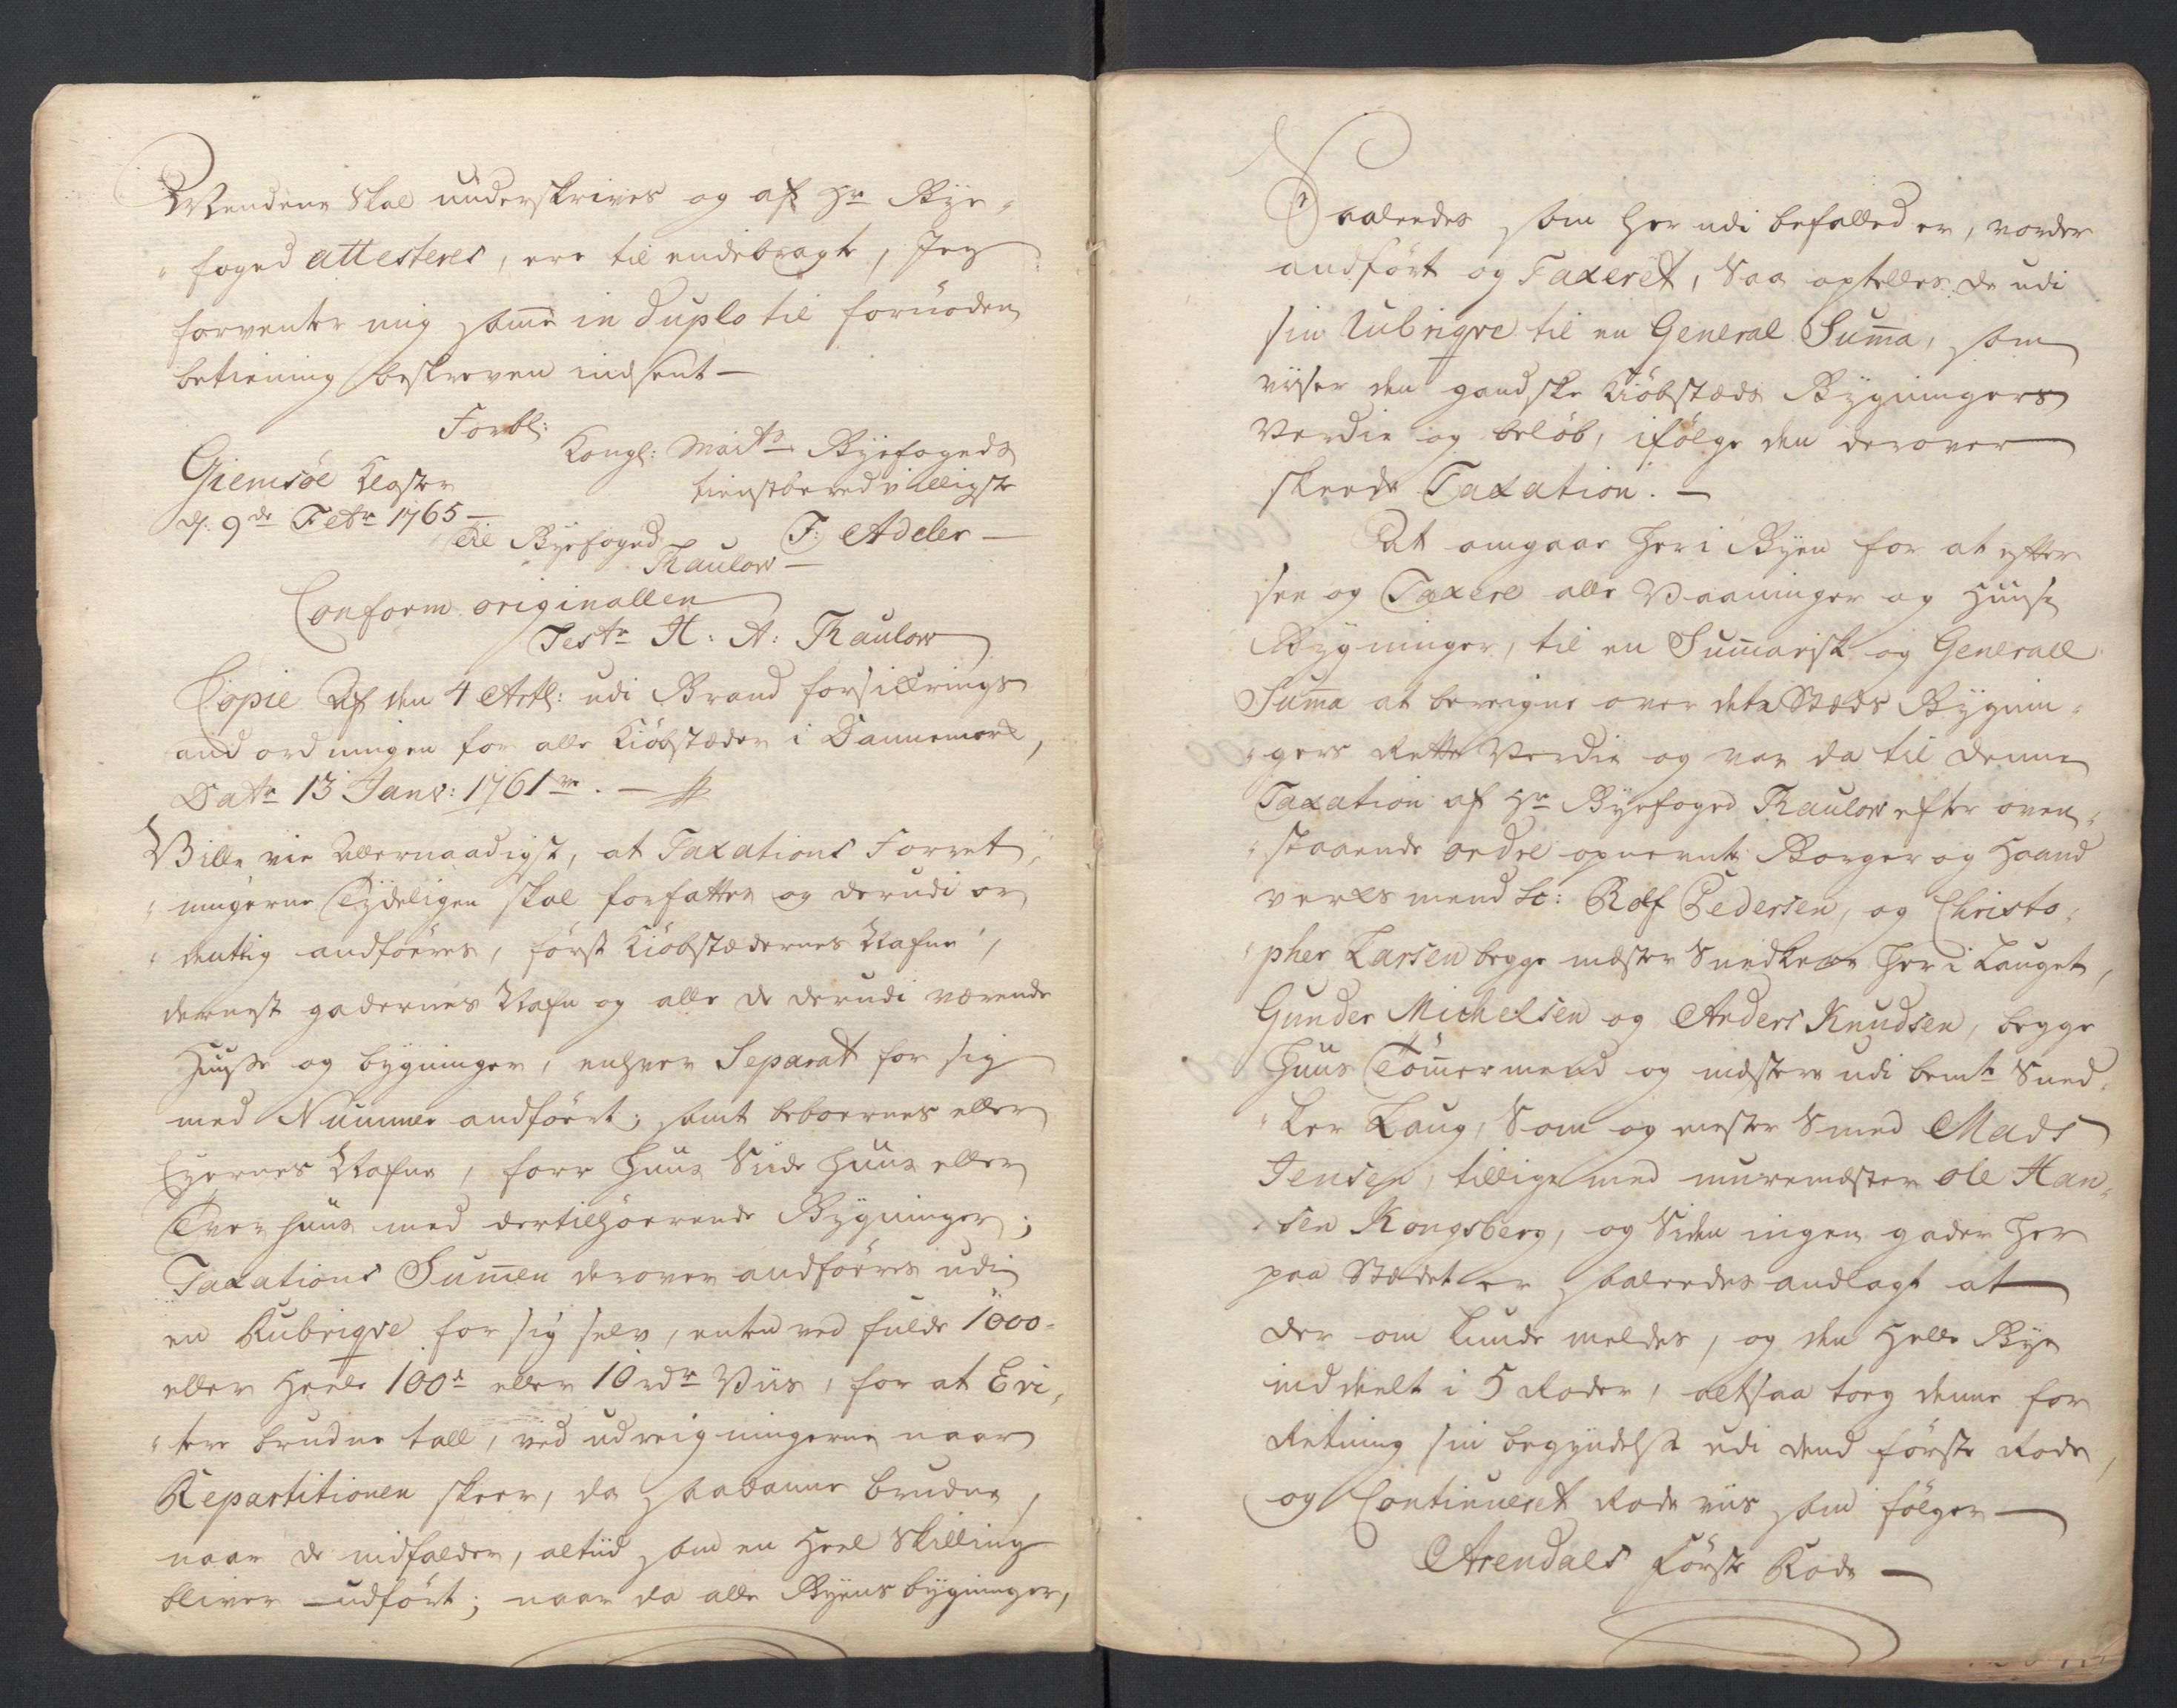 Mendene skal underskrives og af Hr Bye-
foged attesteres, ere til endebragt, Jeg
forventer mig same in duplo til fornöden
betiening beskreven indsent -
Forbl:
Kongl: Maits Byefogeds
Giemsöe Kloster
tienstberedvilligste
d. 9de Febr 1765 -
F: Adeler -
Til Byefoged
Thaulow -
Conform originallen
Test H: A: Thaulow
Copie Af den 4 Artl: udi Brand forsikrings
andordningen for alle Kiöbstæder i Dannemark,
Dat 13 Janv: 1761.
Ville vie Allernaadigst, at Taxations Forret-
ningerne Tydeligen skal forfattes og derudi or
dentlig andföeres, först Kiöbstædernes Nafne,
dernest gadernes Nafn og alle de derudi værende
Huuse og bygninger, enhver Separat for sig
med Nummer andföert; samt beboernes eller
Eyernes Nafne, forr Huus Siide Huus eller
Tver huus med dertilhöerende Bygninger;
Taxations Summen derover andföeres udi
en Rubriqve for sig selv, enten ved fulde 1000-
eller Heele 100de eller 10 rdr Viis, for at Evi-
tere brudne tall, ved udreigningerne naar
Repartitionen skeer, da saadanne brudne,
naar de indfalder, altiid som en Heel Skilling
bliver udfört; naar da alle Byens bygninger,
Saaleedes som her udi befalled er, vorder
andfört og Taxeret, Saa optelles de udi
sin Rubriqve til en General Summa, som
viiser den gandske Kiöbstæds Bygningers
Verdie og belöb, ifölge den derover
skeede Taxation. -
At omgaae her i Byen for at efter
see og Taxere alle Vaaninger og Huuse
Bygninger, til en Summarisk og Generall
Summa at bereigne over dette Stæds Bygnin-
gers Rette Verdie og var da til denne
Taxation af Hr Byefoged Thaulow efter oven-
staaende ordre opnevnte Borger og Haand
verks mend Sc: Rolf Pedersen, og Christo-
pher Larsen begge mester Snedkere her i Lauget,
Gunder Michelsen og Anders Knudsen, begge
Huus Tömmermend og mestere udi bemte Sned-
ker Laug, Som og mester Smed Mads
Jensen, tillige med muremester Ole Han-
sen Kongsberg, og Siden ingen gader her
paa Stædet er saaleedes andlagt at
der om kunde meldes, og den Helle Bye
inddeelt i 5 Roder, altsaa toeg denne for
Retning sin begyndelse udi dend förste Rode,
og Continueret Rode viis som fölger -
Arendals Förste Rode -